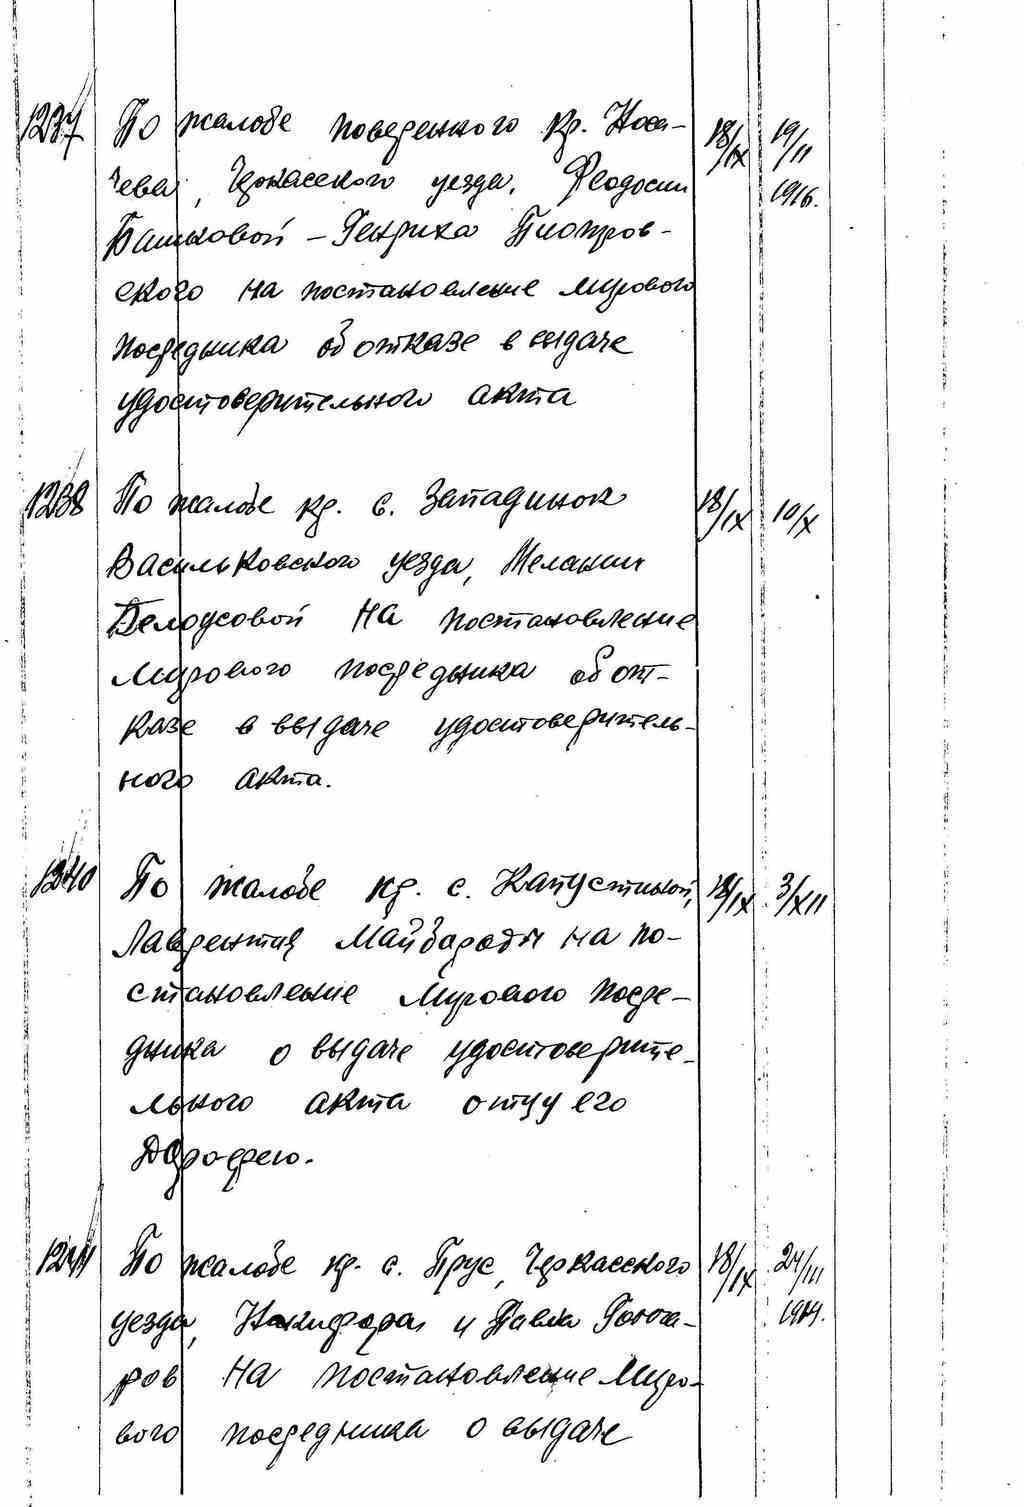 1237 По жалобе поверенного кр. Носа- 18/IX 19/II
чева, Черкасского уезда, Феодосии 1916.
Башковой - Генриха Пиотров-
ского на постановление мирового
посредника об отказе в выдаче
удостоверительного акта
1238 По жалобе кр. с. Западинок 18/IX 10/X
Васильковского уезда, Мелании
Белоусовой на постановление
Мирового посредника об от-
казе в выдаче удостоверитель-
ного акта.
1240 По жалобе кр. с. Капустиной, 18/IX 3/XII
Лаврентия Майбороды на по-
становление Мирового посре-
дника о выдаче удостоверите-
льного акта отцу его
Дорофею.
1241 По жалобе кр. с. Прус, Черкасского 18/IX 24/III
уезда, Никифора и Павла
ров на постановление Миро-
вого посредника о выдаче